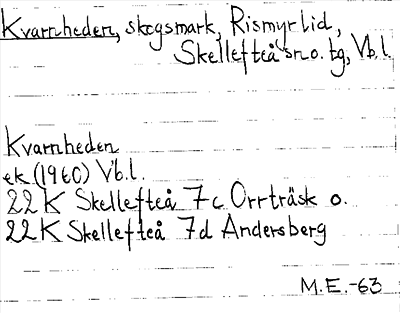 Kvarnheden, skogsmark, Rismyrlid,
Skellefteå sn o. tg, Vb.l.
Kvarnheden
ek (1960) Vb.l.
22 K Skellefteå 7c Orrträsk o.
22 K Skellefteå 7d Andersberg
M.E.-63